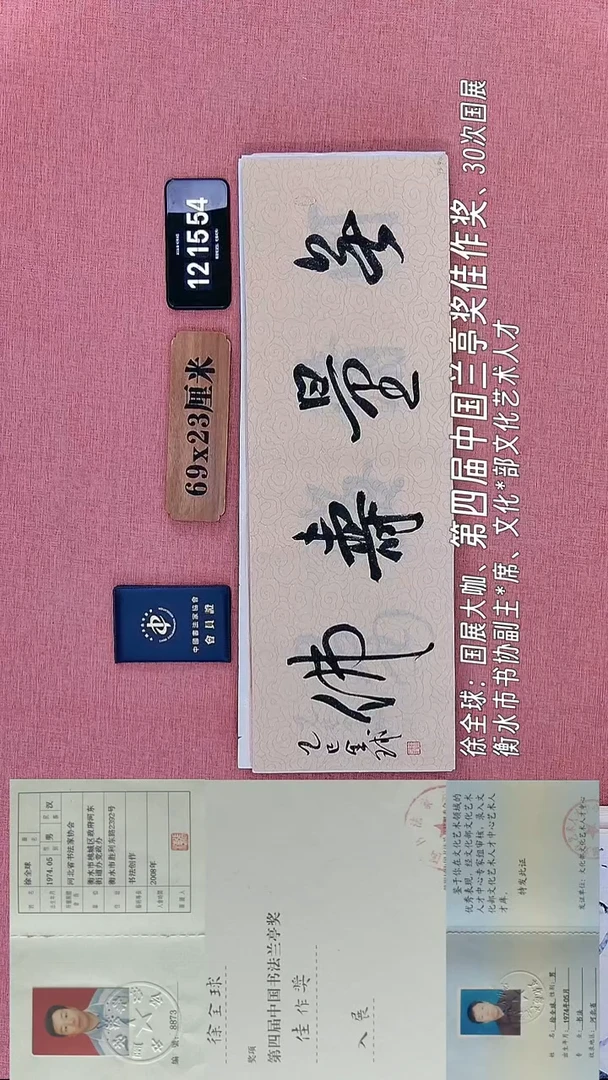 12 15 54
69x23厘米
中國書法家協會
會員證
無量壽佛
乙巳全球
徐全球：国展大咖、第四届中国兰亭奖佳作奖、30次国展
衡水市书协副主*席、文化*部文化艺术人才
徐全球
1974.05 男 汉
河北省书法家协会
衡水市桃城区政府河东
街道办党政办
衡水市胜利东路2392号
书法创作
2008年
编 号: 8873
徐全球
奖项
第四届中国书法兰亭奖
佳作奖
入展
鉴于你在文化艺术领域的
优秀表现，经文化部文化艺术
人才中心专家组审核，录入文
化部文化艺术人才中心艺术人
才库。
特发此证
发证单位：文化部文化艺术人才中心
姓名：徐全球 性别：男
出生年月：1974年05月
专业：书法